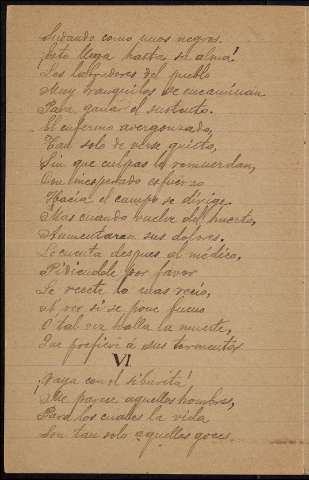 Sudando como unos negros.
¡Esto llega hasta el alma!
Los labradores del pueblo
Muy tranquilos se encaminan
Para ganar el sustento.
El enfermo avergonzado,
Tan solo de verse quieto,
Sin que culpas le remuerdan,
Con inesperado esfuerzo
Hacia el campo se dirige.
Mas cuando vuelve del huerto,
Aumentaran sus dolores.
Le cuenta despues al médico,
Pidiendole por favor
Le recete lo mas recio,
A ver si se pone bueno
O tal vez halla la muerte,
Que prefiere á sus tormentos.
VI.
¡Vaya con el sibarita!
Me parece aquellos hombres,
Para los cuales la vida
Son tan solo aquellos goces.